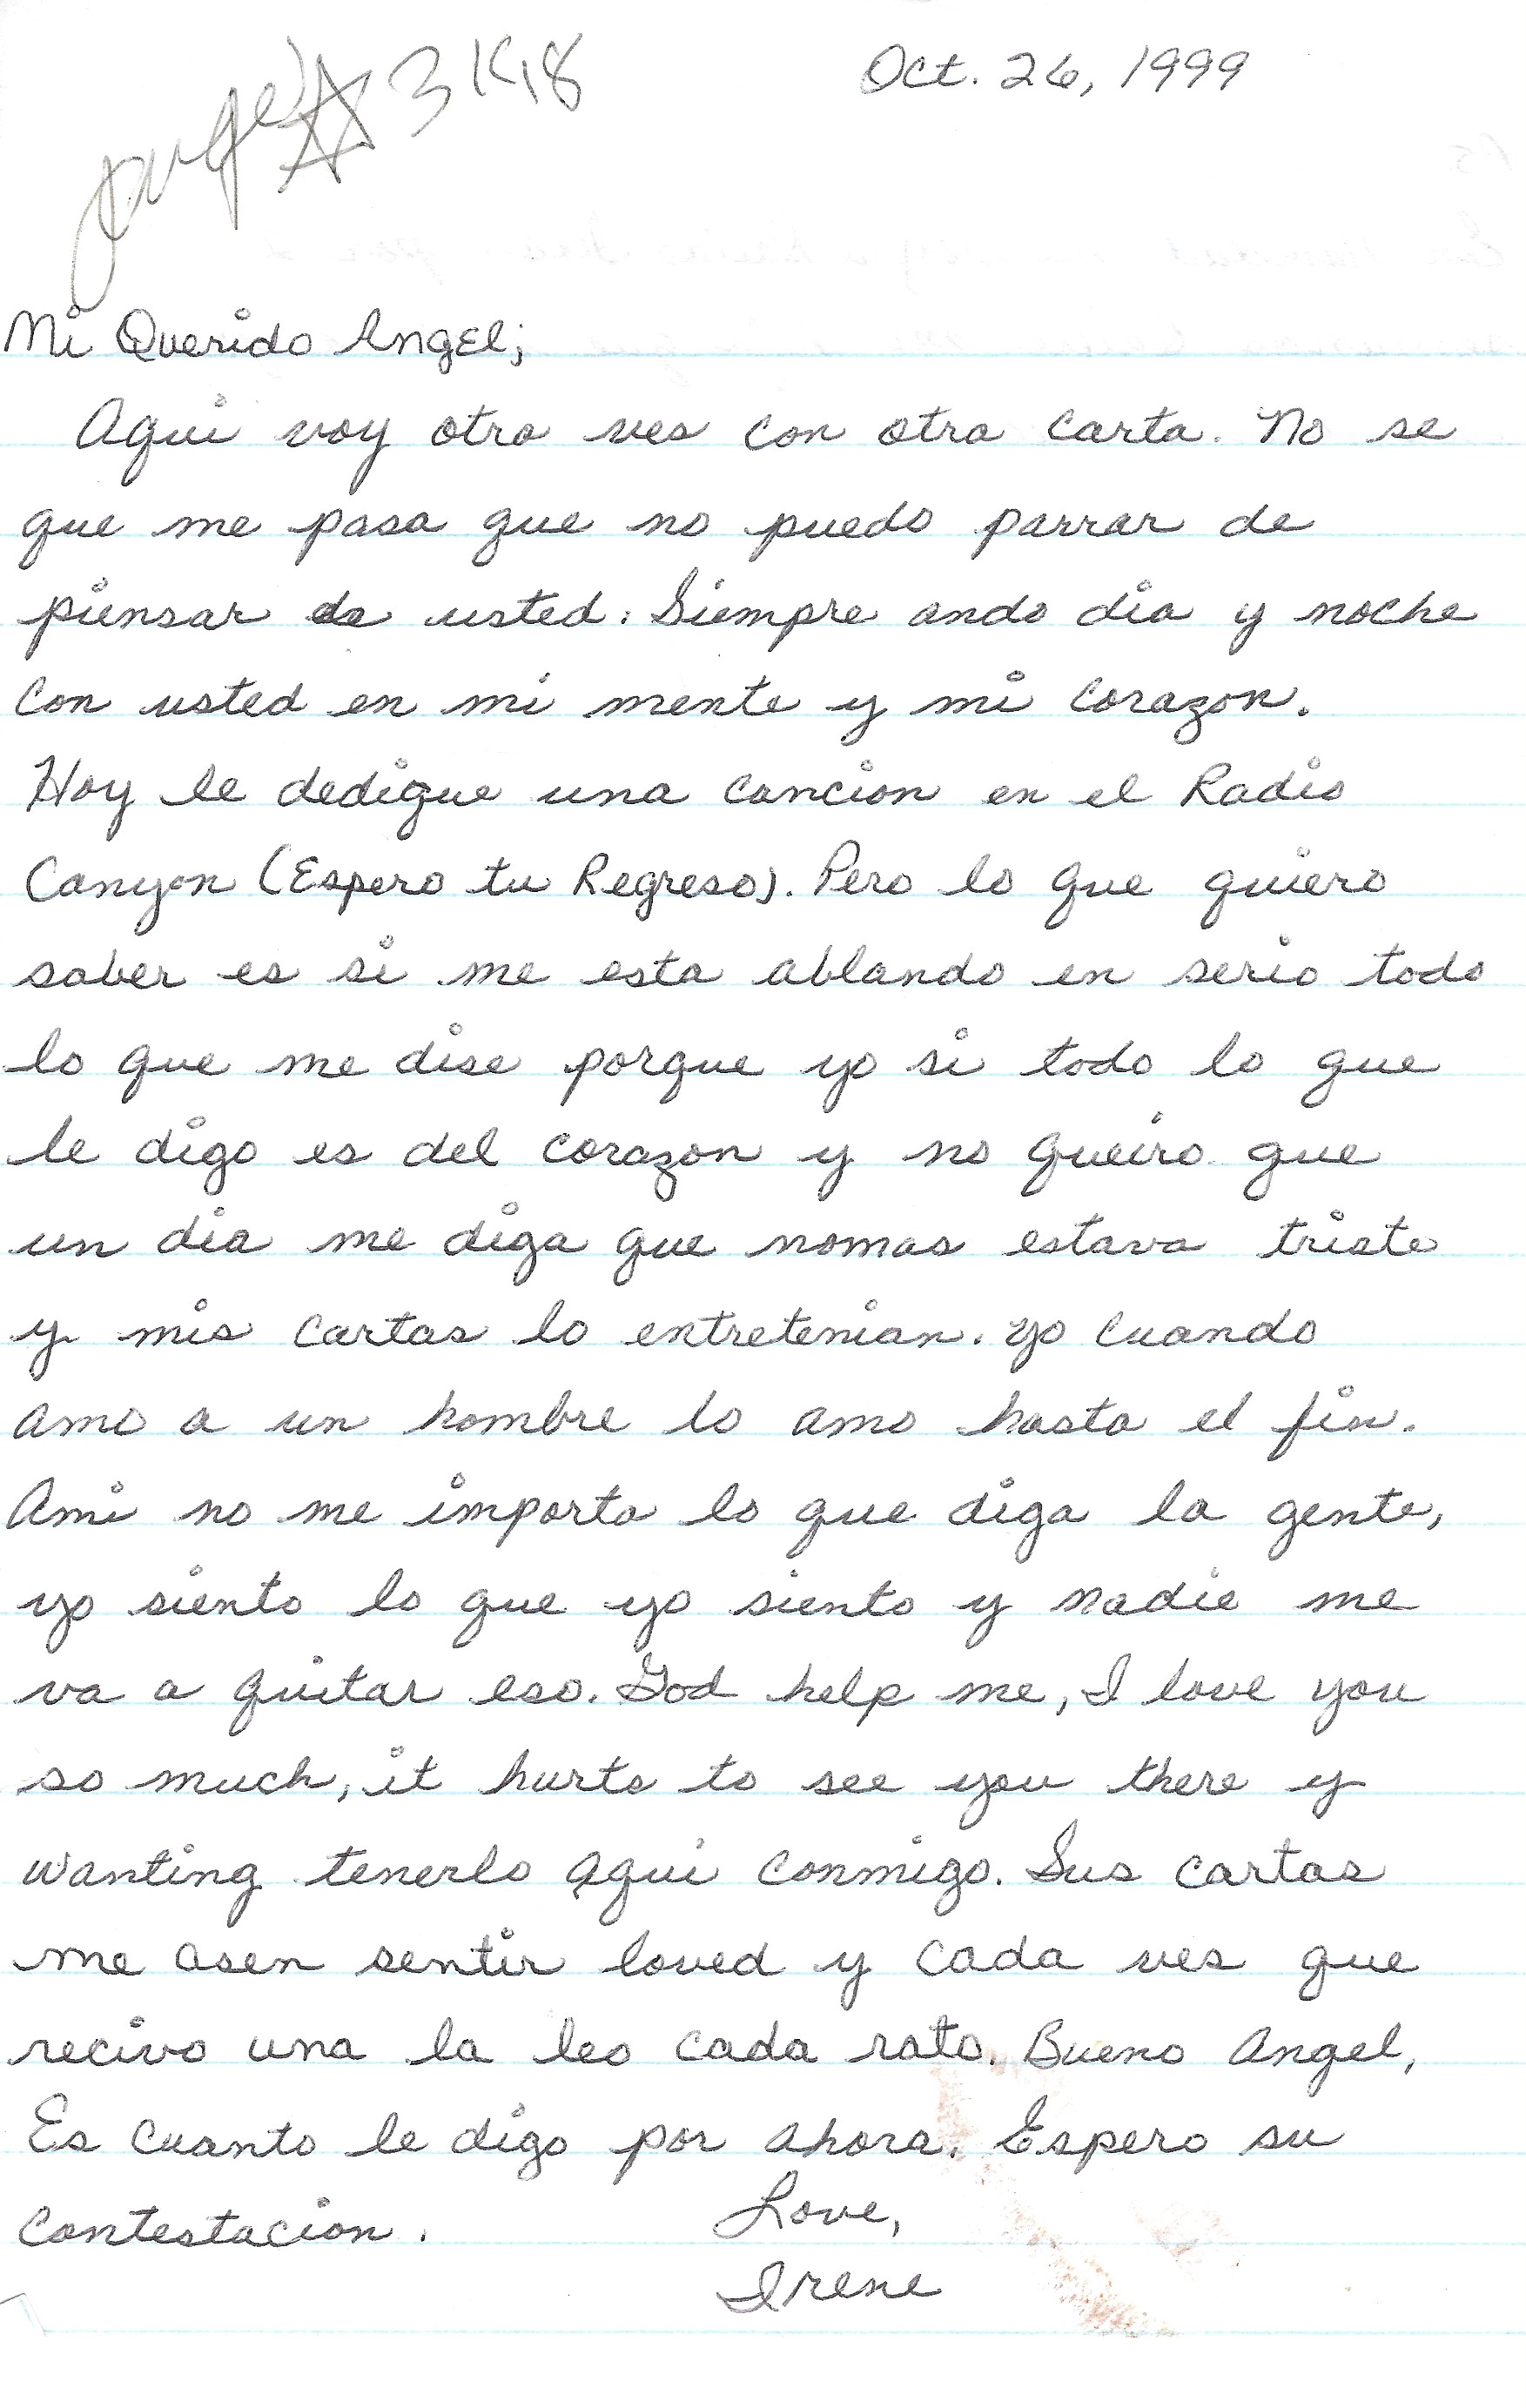 Oct. 26, 1999
Mi Querido Angel;
Aqui voy otra ves con otra carta. No se
que me pasa que no puedo parrar de
piensar de usted. Siempre ando dia y noche
con usted en mi mente y mi corazon.
Hoy le dedique una cancion en el Radio
Canyon (Espero tu Regreso). Pero lo que quiero
saber es si me esta ablando en serio todo
lo que me dise porque yo si todo lo que
le digo es del corazon y no queiro que
un dia me diga que nomas estava triste
y mis cartas lo entretenian. yo cuando
amo a un hombre lo amo hasta el fin.
Ami no me importa lo que diga la gente,
yo siento lo que yo siento y nadie me
va a quitar eso. God help me, I love you
so much, it hurts to see you there y
wanting tenerlo aqui conmigo. Sus cartas
me asen sentir loved y cada ves que
recivo una la leo cada rato. Bueno Angel,
Es cuanto le digo por ahora. Espero su
contestacion.
Love,
Irene